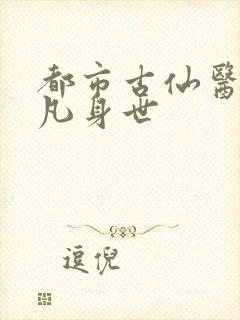 都市古仙醫
凡身世
逗倪